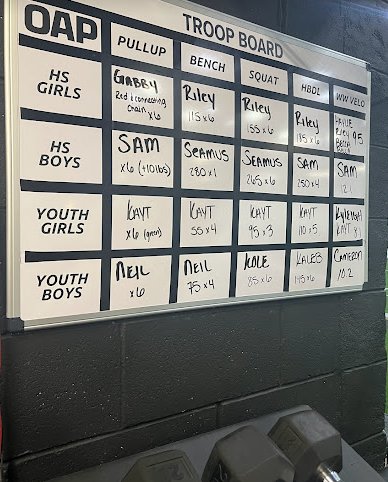 OAP TROOP BOARD
PULLUP BENCH SQUAT HBDL WW VELO
HS GIRLS
GABBY
Red & connecting chain x6
Riley
115 x 6
Riley
155 x 6
Riley
185 x 6
Riley
95
HS BOYS
SAM
x6 (+10lbs)
SEAMUS
280 x 1
SEAMUS
265 x 6
SAM
250 x 4
SAM
121
YOUTH GIRLS
KAYT
x6 (green)
KAYT
55 x 4
KAYT
95 x 3
KAYT
110 x 5
Kyleigh
KAYT 81
YOUTH BOYS
NEIL
x6
NEIL
75 x 4
KOLE
85 x 6
KALEB
145 x 6
CAMERON
70.2